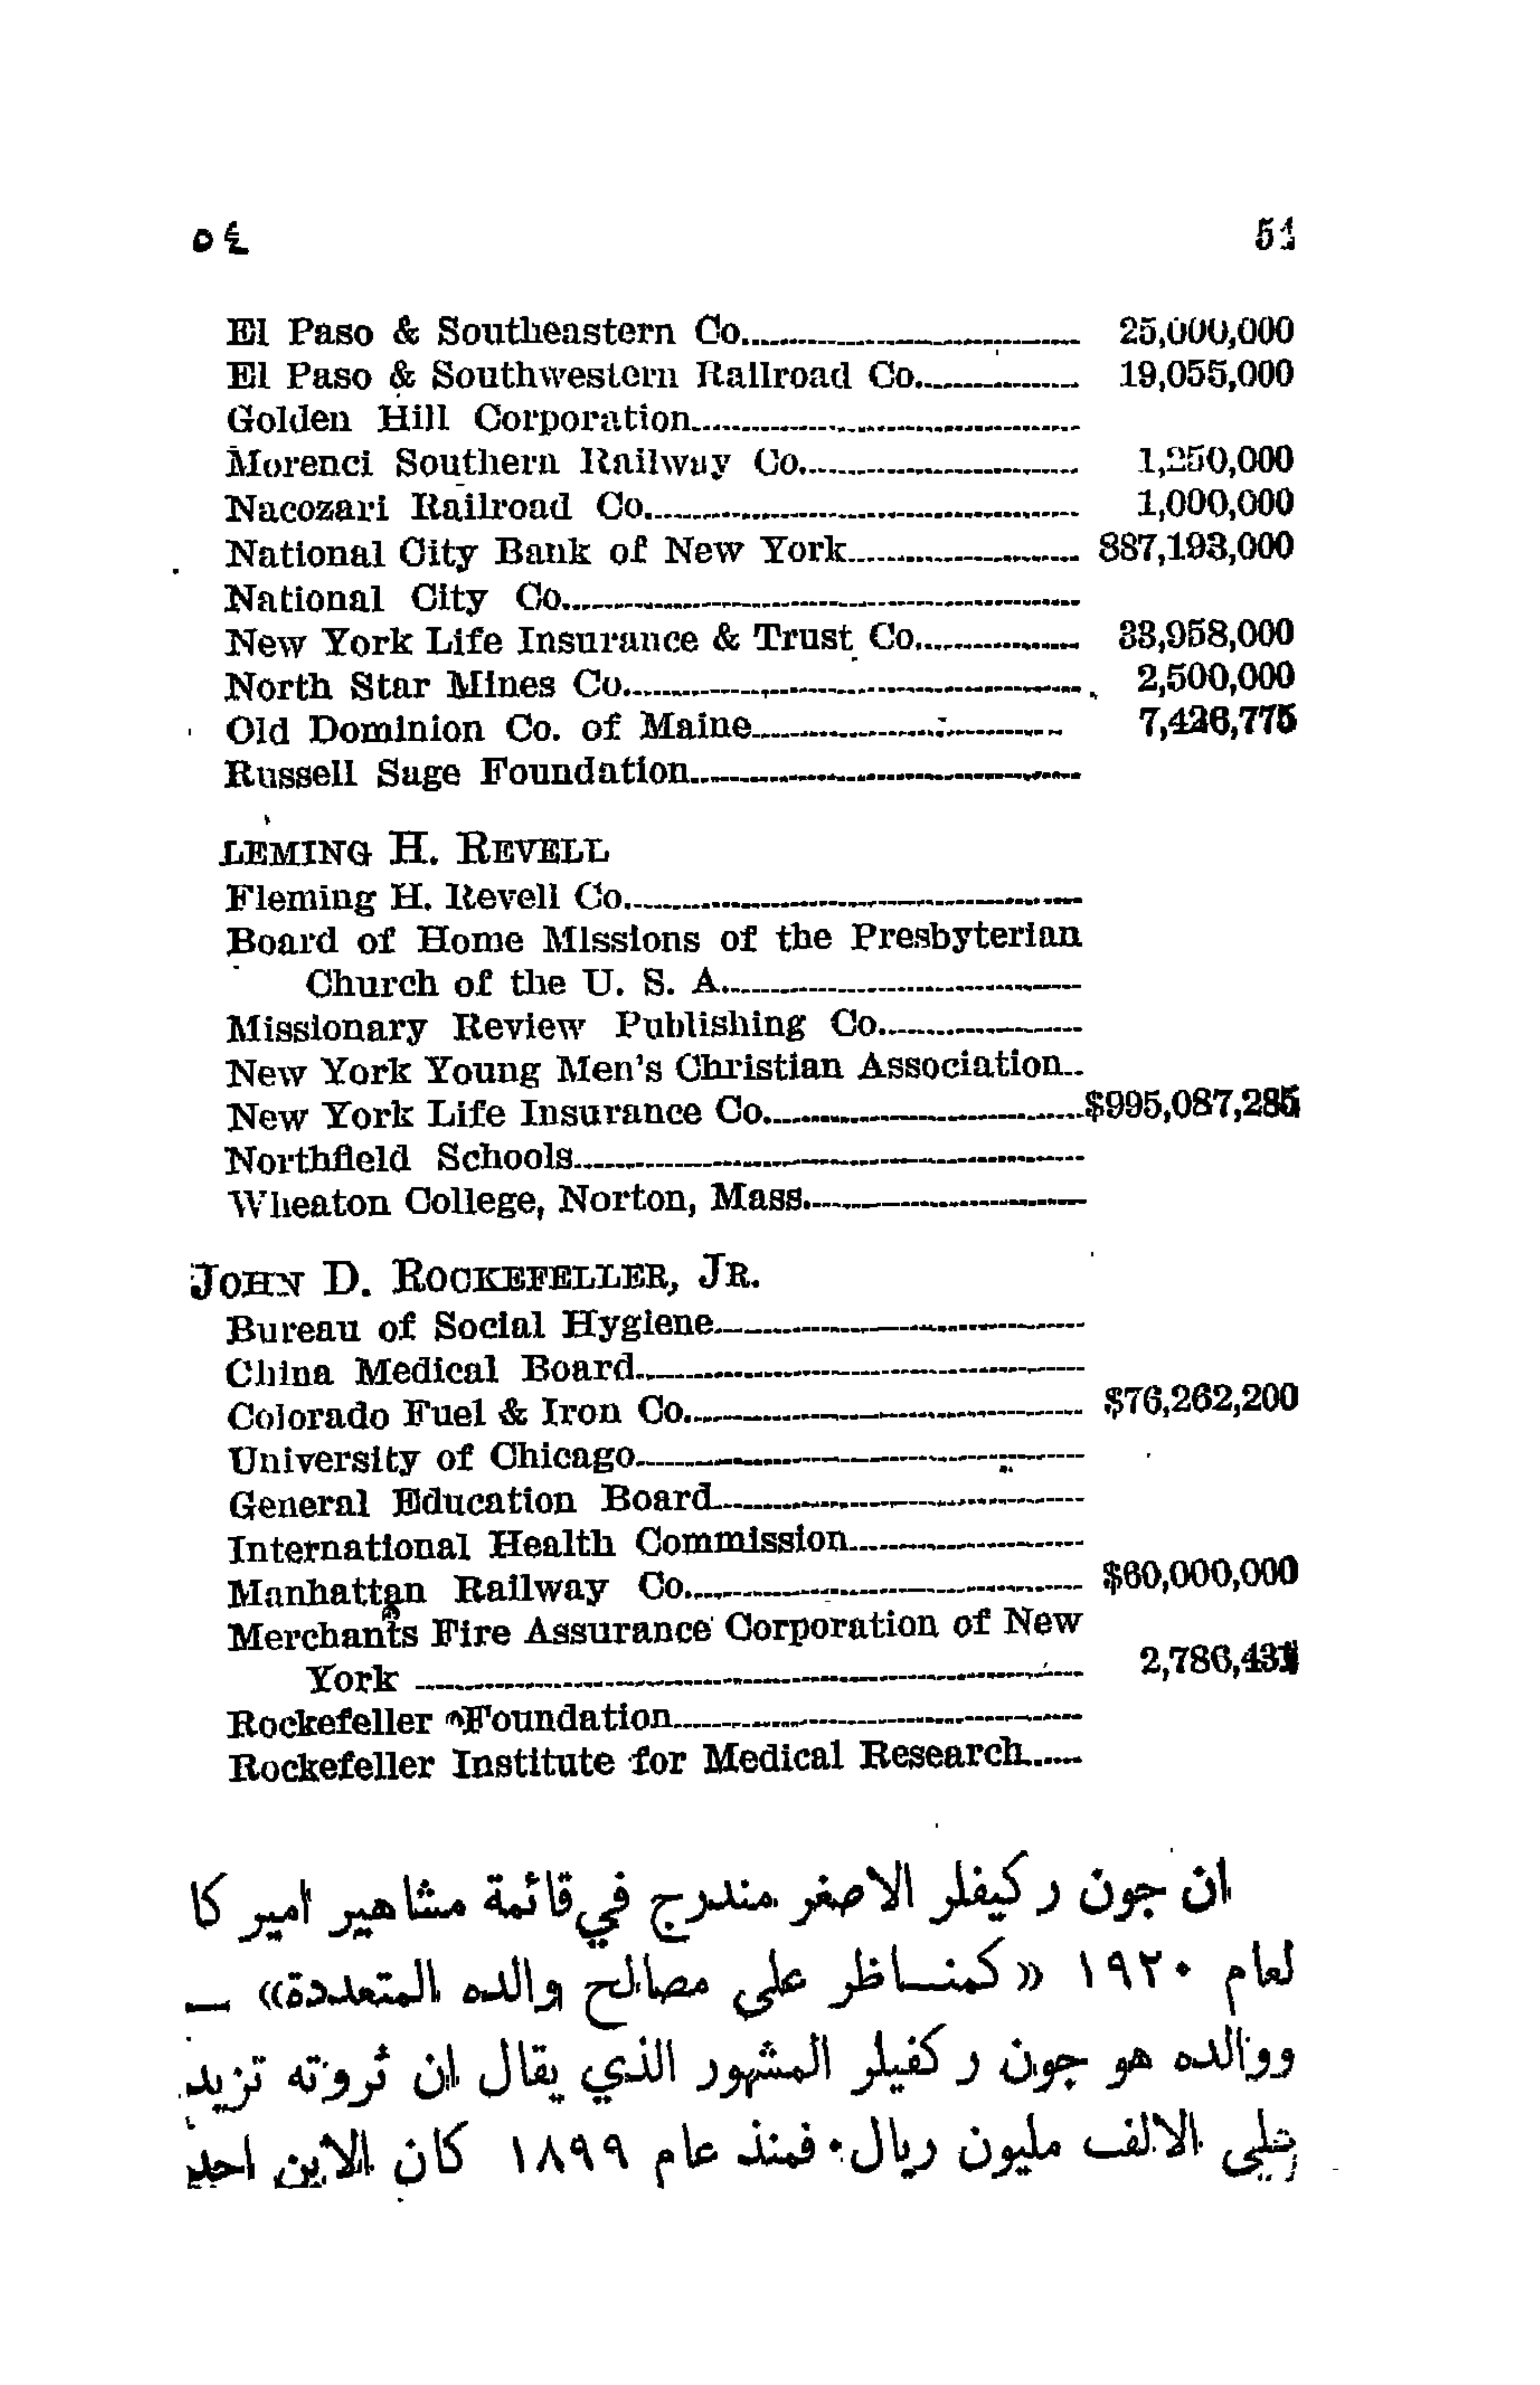 ٥٤ 54
El Paso & Southeastern Co. 25,000,000
El Paso & Southwestern Railroad Co. 19,055,000
Golden Hill Corporation
Morenci Southern Railway Co. 1,250,000
Nacozari Railroad Co. 1,000,000
National City Bank of New York 887,193,000
National City Co.
New York Life Insurance & Trust Co. 33,958,000
North Star Mines Co. 2,500,000
Old Dominion Co. of Maine 7,426,775
Russell Sage Foundation
LEMING H. REVELL
Fleming H. Revell Co.
Board of Home Missions of the Presbyterian
Church of the U. S. A.
Missionary Review Publishing Co.
New York Young Men's Christian Association..
New York Life Insurance Co. $995,087,285
Northfield Schools
Wheaton College, Norton, Mass.
JOHN D. ROCKEFELLER, JR.
Bureau of Social Hygiene
China Medical Board
Colorado Fuel & Iron Co. $76,262,200
University of Chicago
General Education Board
International Health Commission
Manhattan Railway Co. $60,000,000
Merchants Fire Assurance Corporation of New
York
Rockefeller Foundation
Rockefeller Institute for Medical Research
ان جون ركيفلر الاصغر مندرج في قائمة مشاهير اميركا
لعام ١٩٢٠ «كمنـاظر على مصالح والده المتعددة» —
ووالده هو جون ركفيلر المشهور الذي يقال ان ثروته تزيد
على الالف مليون ريال. فمنذ عام ١٨٩٩ كان الابن احد